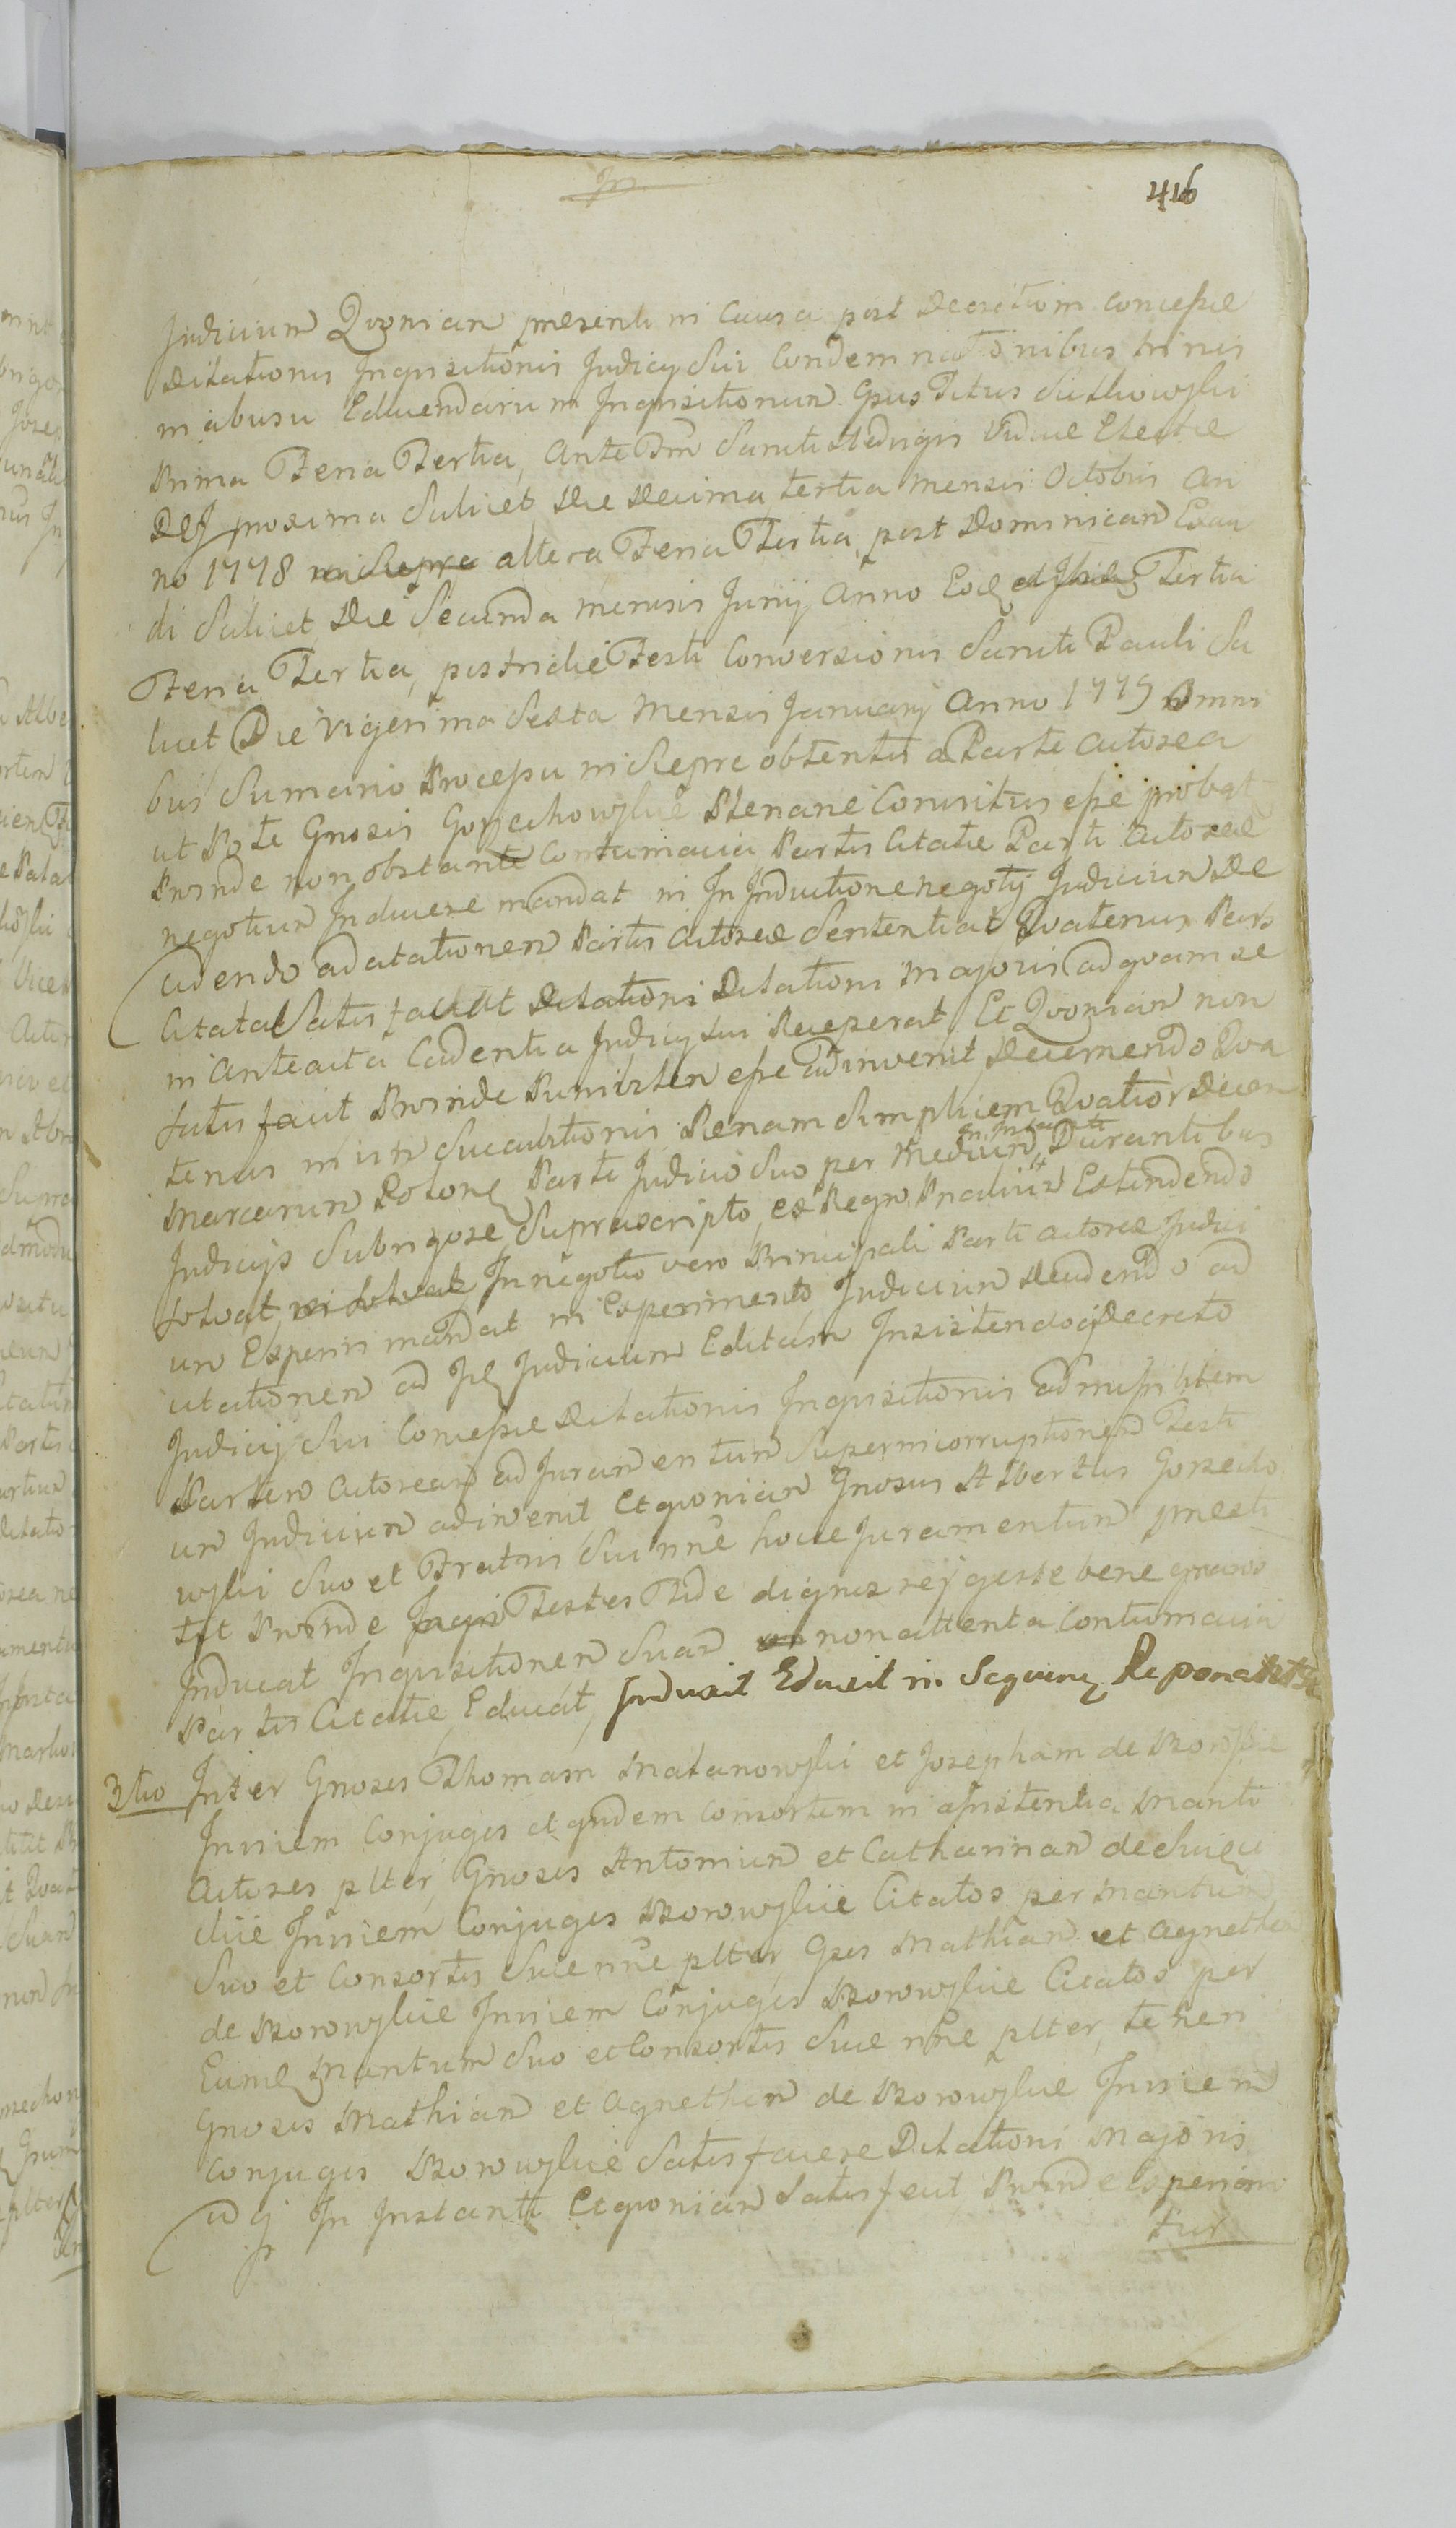 416
Judicium Qvoniam presenti in Causa post Decretum concessæ
Dilationis Inqvisitionis Judicÿ Sui Condemnationibus trinis
in abusu Educendarum Inqvisitionum Gsus Titus
Prima Feria Tertia, ante Dm Sanctæ Hedvigis Viduæ Electæ
proxima Scilicet Die Decima tertia mensis Octobris An
no 1778 altera Feria Tertia, post Dominicam Exau
di Scilicet Die Secunda mensis Junij Anno Eod Tertia
Feria Tertia, postridie Festi Conversionis Sancti Pauli Sci
licet Die Vigesima Sexta Mensis Januarij Anno 1779 Omni
bus Sumario Processu in Repre obtentis a Parte Actorea
ut Pote Gnosis Gorzechowskie Plenarie Convictus esse probat
Proinde non obstante Contumacia Partis Citatæ Parti Actoreæ
negotium Inducere mandat in Inductione negotij Judicium De
cidendo ad citationem Partis Actoreæ Sententiat Qvatenus Pars
Citata Satisfaciat Dilationi Dilationi Majoris ad qvam se
in Anteacta Cadentia Judicij sui Receperat Et Qvoniam non
Satisfacit Proinde Punibilem esse adinvenit Decernendo Qva
tenus in vim Succubitionis Penam Simplicem Qvatuor Decem
In Instanti
Marcarum Polon Parti Judicio Suo per Medium Durantibus
Judicijs Sub rigore Suprascripto, ex Regno Extendendo
Solvat, In negotio vero Principali Parti Actoreæ Judici
um Experiri mandat in Experimento Judicium Decidendo ad
citationem ad Judicium Editam Insistendoq Decreto
Judicij Sui Concessæ Dilationis Inqvisitionis admissibilem
Partem Actoream ad Juramentum Super incorruptionem Testi
um Judicium adinvenit Et qvoniam Gnosus Albertus Gorzecho
wski Suo et Fratris Sui nne hocce Juramentum præsti
tit Proinde Testes Fide dignos rej gestæ bene gnaros
Inducat Inqvisitionem Suam non attenta Contumacia
Partis Citatæ Educat, Induxit Eduxit in Seqvenq Reponatur
3tio Inter Gnosos Thomam Matanowski et Josepham de
Invicem Conjuges et qvidem Consortem in assistentia Mariti
Actores plter, Gnosos Antonium et Catharinam de
Invicem Conjuges Borowskie Citatos per Maritum
Suo et Consortis Suæ nne plter Gsos Mathiam et Agnetem
de Borowskie Invicem Conjuges Borowskie Citatos per
Eund Maritum Suo et Consortis Suæ nne plter, teneri
Gnosos Mathiam et Agnethem de Borowskie Invicem
Conjuges Borowskie Satisfacere Dilationi Majoris
In Instanti Et qvoniam Satisfecit Proinde experian
tur